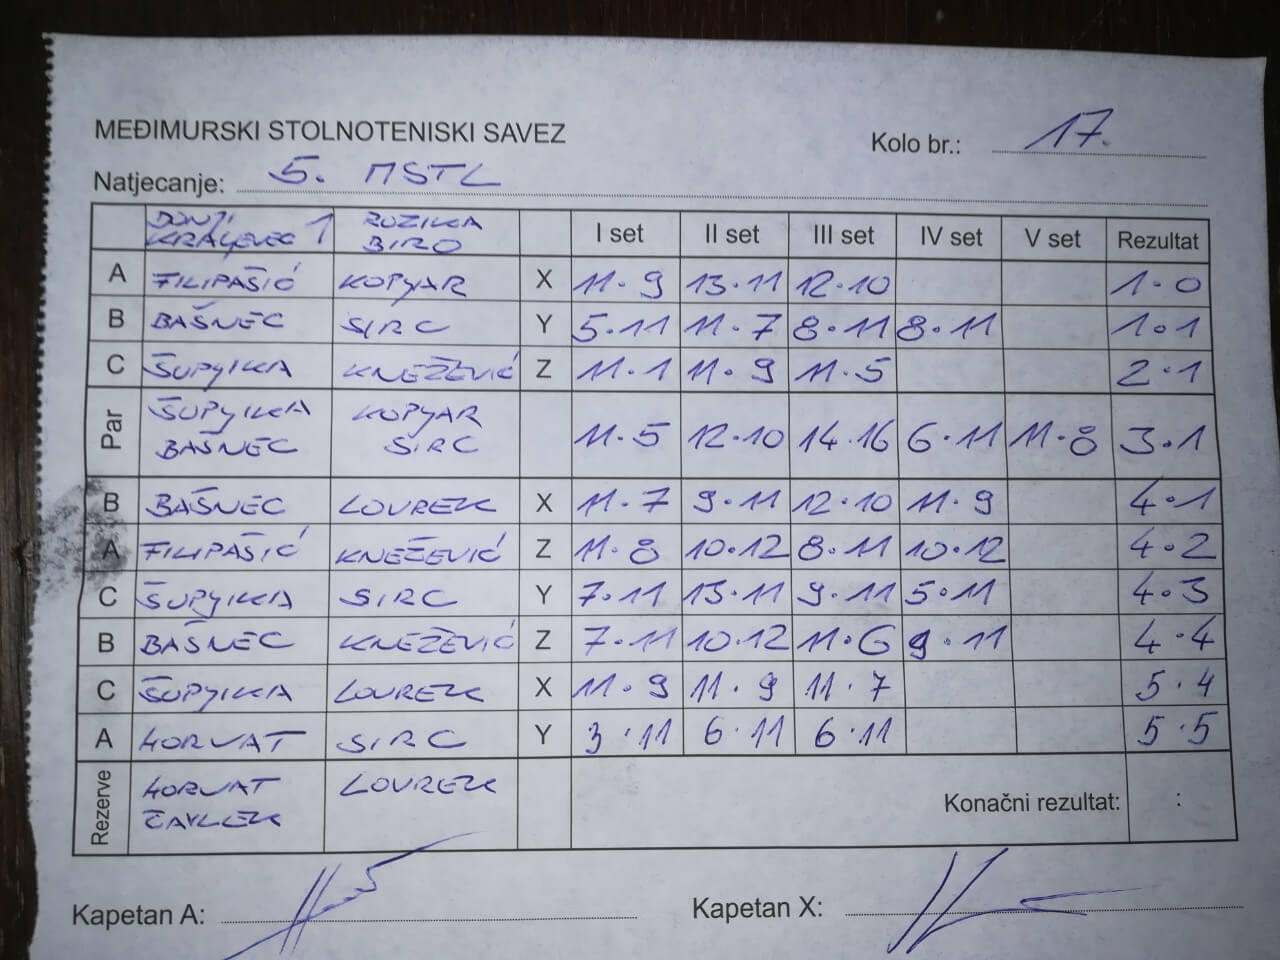 MEĐIMURSKI STOLNOTENISKI SAVEZ
Kolo br.: 17.
Natjecanje: 5. MSTL
DONJI KRALJEVEC 1 RUZICA BIRO I set II set III set IV set V set Rezultat
A FILIPAŠIĆ KOPJAR X 11·9 13·11 12·10 1·0
B BAŠNEC SIRC Y 5·11 11·7 8·11 8·11 1·1
C ŠUPLJIKA KNEŽEVIĆ Z 11·1 11·9 11·5 2·1
Par ŠUPLJIKA BAŠNEC KOPJAR SIRC 11·5 12·10 14·16 6·11 11·8 3·1
B BAŠNEC LOUREK X 11·7 9·11 12·10 11·9 4·1
A FILIPAŠIĆ KNEŽEVIĆ Z 11·8 10·12 8·11 10·12 4·2
C ŠUPLJIKA SIRC Y 7·11 13·11 9·11 5·11 4·3
B BAŠNEC KNEŽEVIĆ Z 7·11 10·12 11·6 9·11 4·4
C ŠUPLJIKA LOUREK X 11·9 11·9 11·7 5·4
A HORVAT SIRC Y 3·11 6·11 6·11 5·5
Rezerve HORVAT ČAVLEK LOUREK Konačni rezultat: :
Kapetan A: Kapetan X: